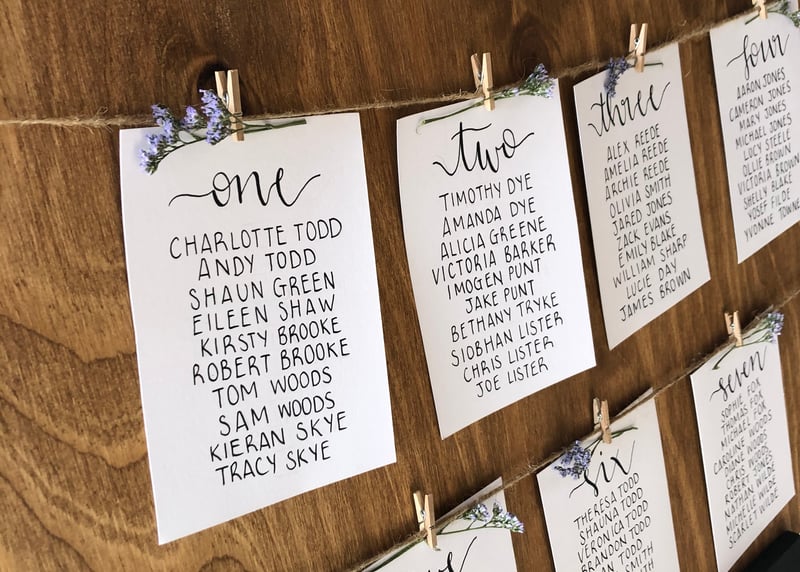 one
CHARLOTTE TODD
ANDY TODD
SHAUN GREEN
EILEEN SHAW
KIRSTY BROOKE
ROBERT BROOKE
TOM WOODS
SAM WOODS
KIERAN SKYE
TRACY SKYE
two
TIMOTHY DYE
AMANDA DYE
ALICIA GREENE
VICTORIA BARKER
IMOGEN PUNT
JAKE PUNT
BETHANY TRYKE
SIOBHAN LISTER
CHRIS LISTER
JOE LISTER
three
ALEX REEDE
AMELIA REEDE
ARCHIE REEDE
OLIVIA SMITH
JARED JONES
ZACK EVANS
EMILY BLAKE
WILLIAM SHARP
LUCIE DAY
JAMES BROWN
four
AARON JONES
CAMERON JONES
MARY JONES
MICHAEL JONES
LUCY STEELE
OLLIE BROWN
VICTORIA BROWN
SHELLY BLAKE
YOSEF FILDE
YVONNE TOWNE
six
THERESA TODD
SHAUNA TODD
VERONICA TODD
BRANDON TODD
TODD
SMITH
seven
SOPHIE FOX
THOMAS FOX
MICHAEL FOX
CAROLINE WOODS
DIANE WOODS
CHRIS WOODS
ROBERT JONES
NATHAN WILDE
MICHELLE WILDE
SCARLET WILDE